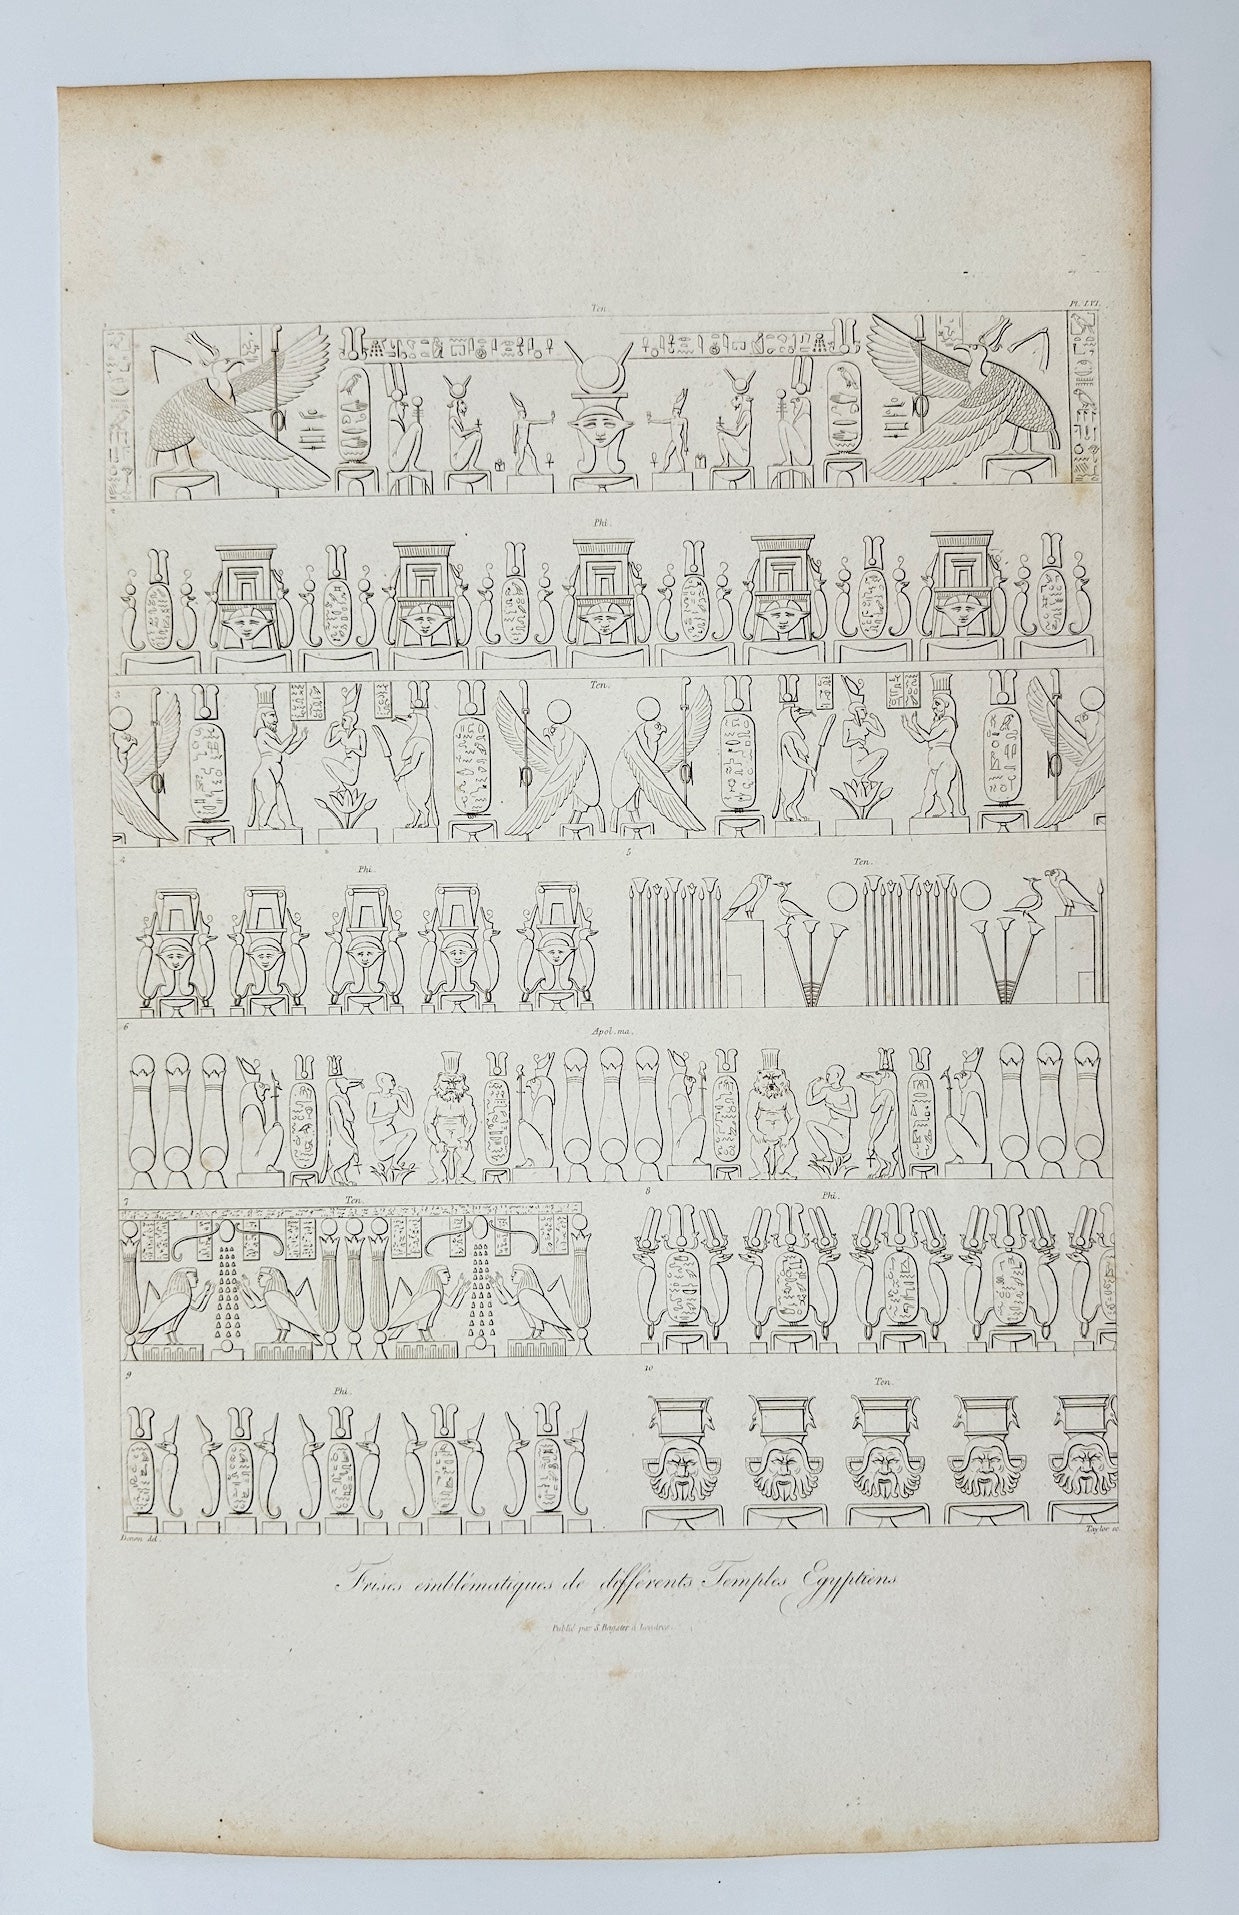 Ten.
Pl. LVI.
1
2
Phi.
3
Ten.
4
Phi.
5
Ten.
6
Apol. ma.
7
Ten.
8
Phi.
9
Phi.
10
Ten.
Denon del.
Taylor sc.
Frises emblématiques de différents Temples Egyptiens
Publié par S. Bagster à Londres.